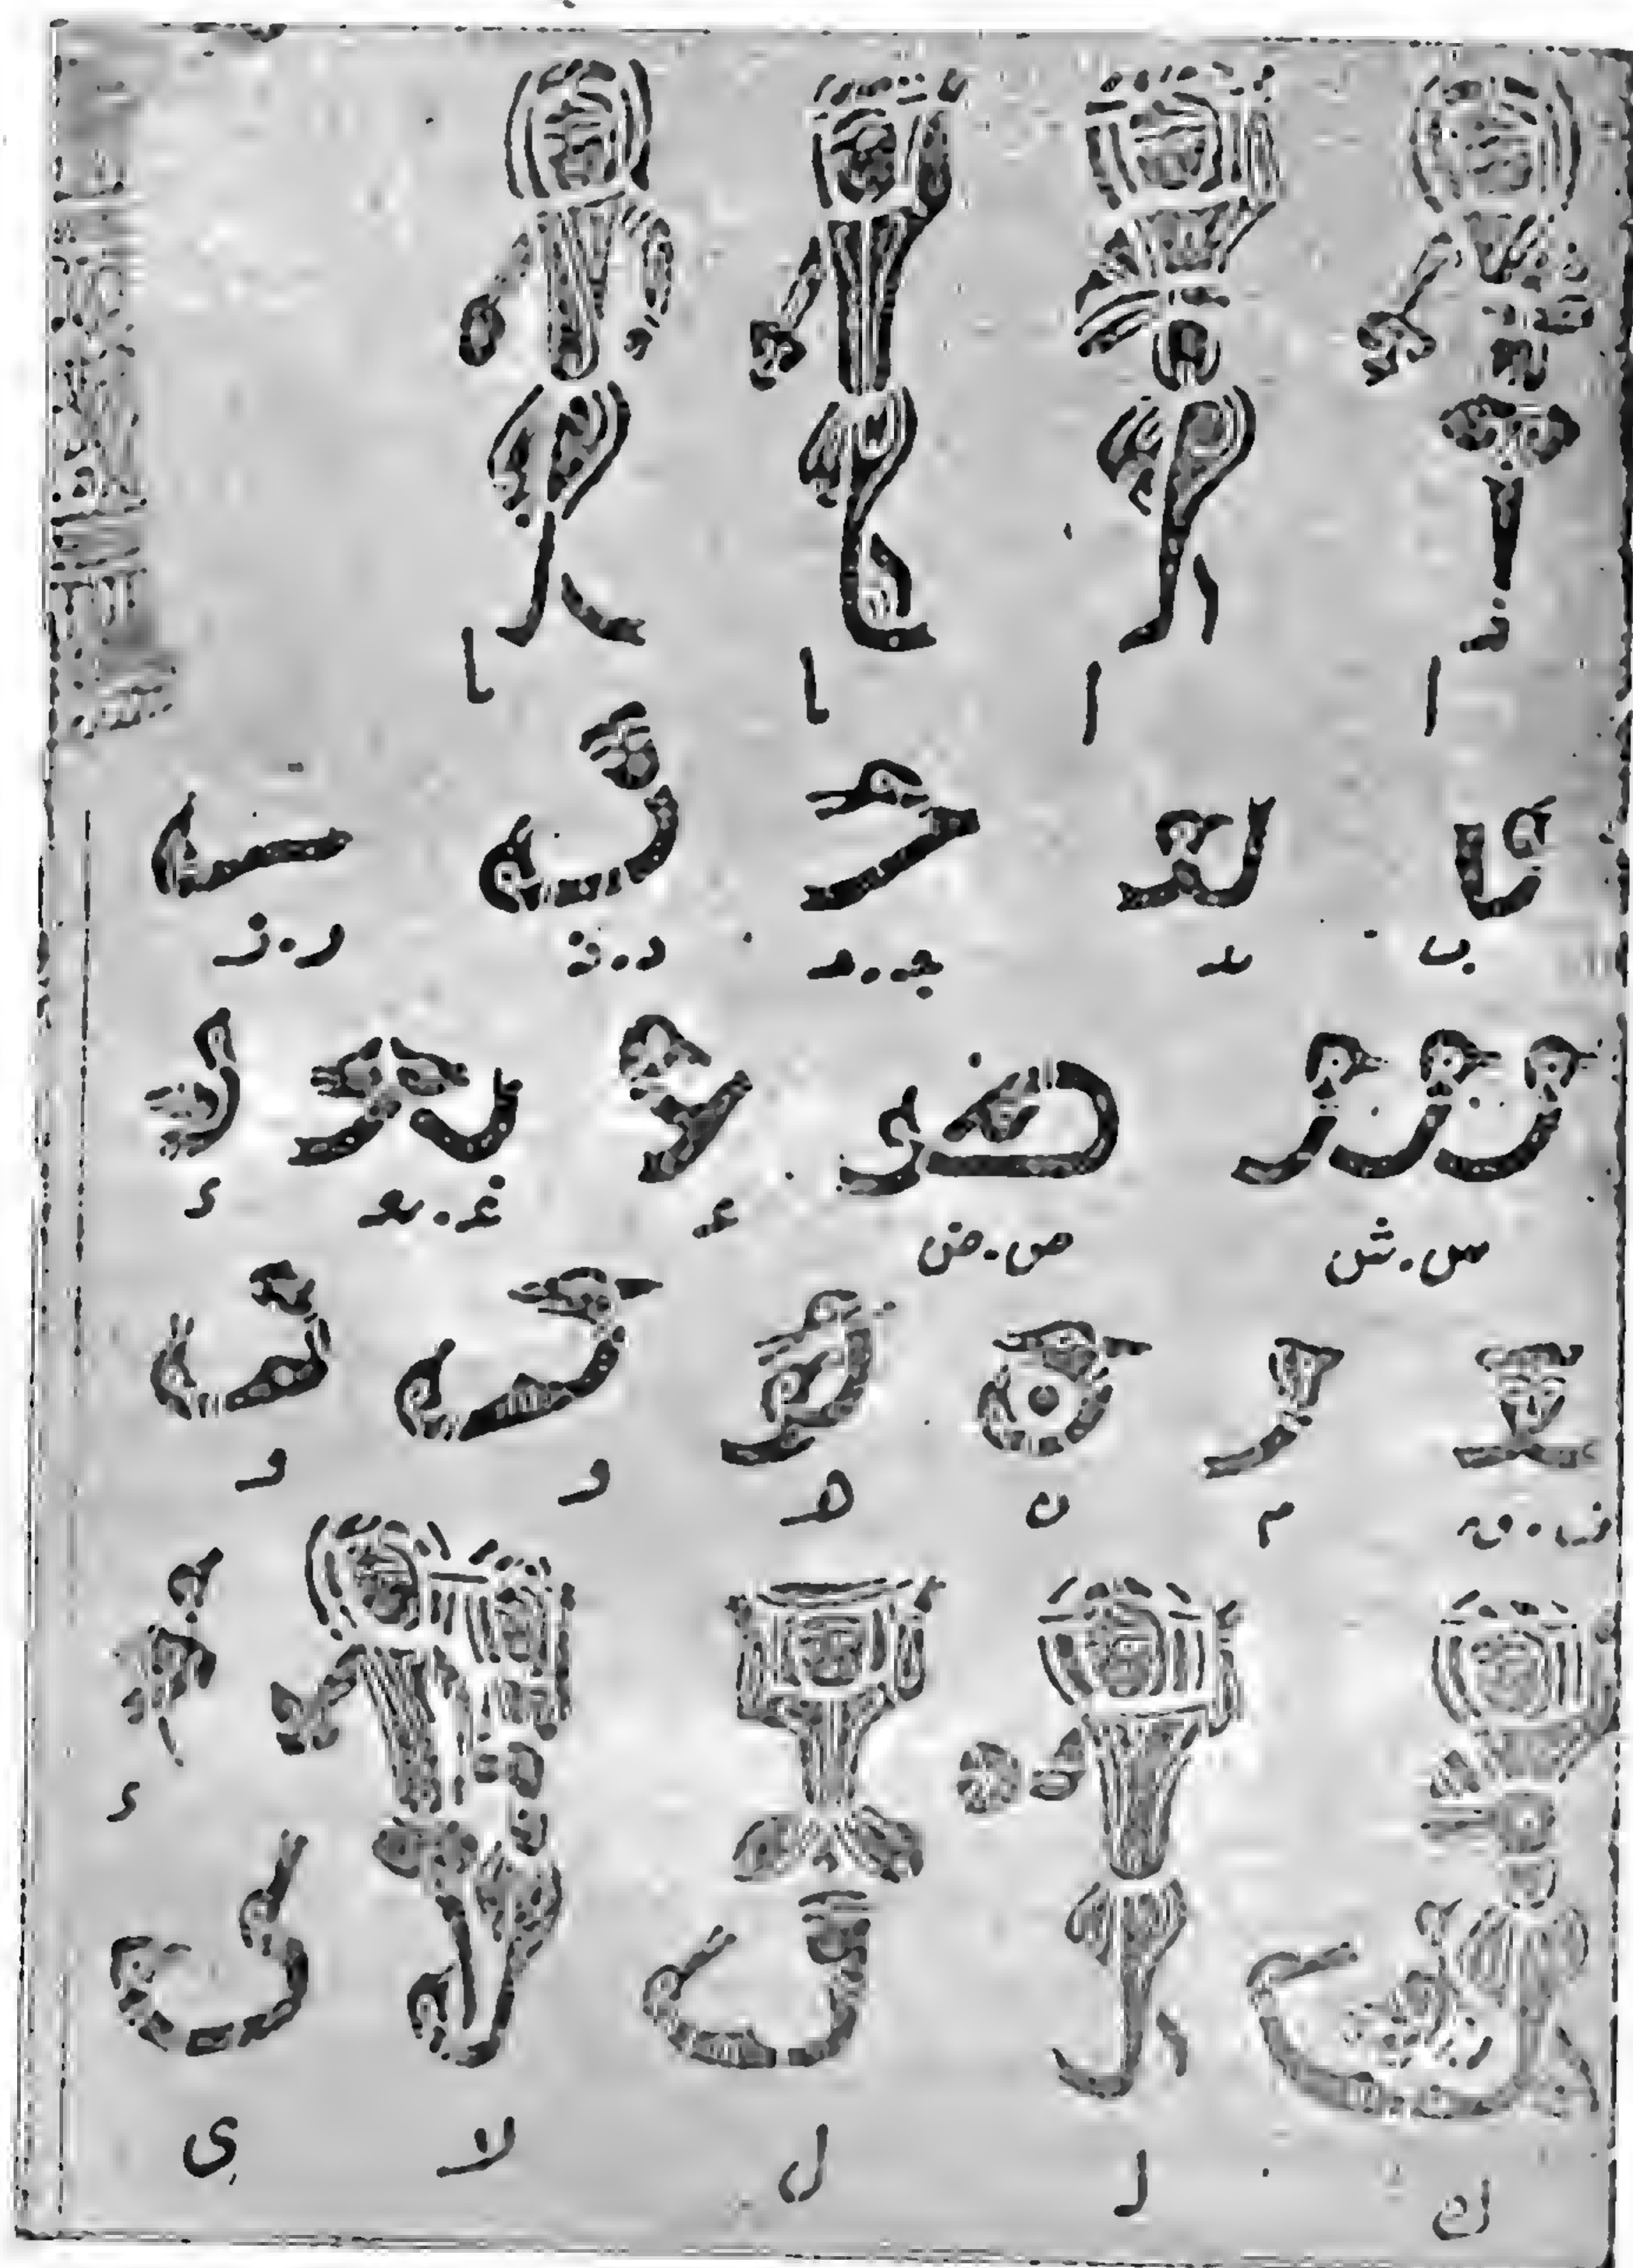 ا ا ‍ا ‍ا
ب ‍د ج‍.‍ح‍ د.ذ ر.ز
س.ش ص.ض ع‍ غ‍.‍ع‍ ء
ف‍.ق‍ م ن ه و و
ء
ك ل‍ ل لا ى